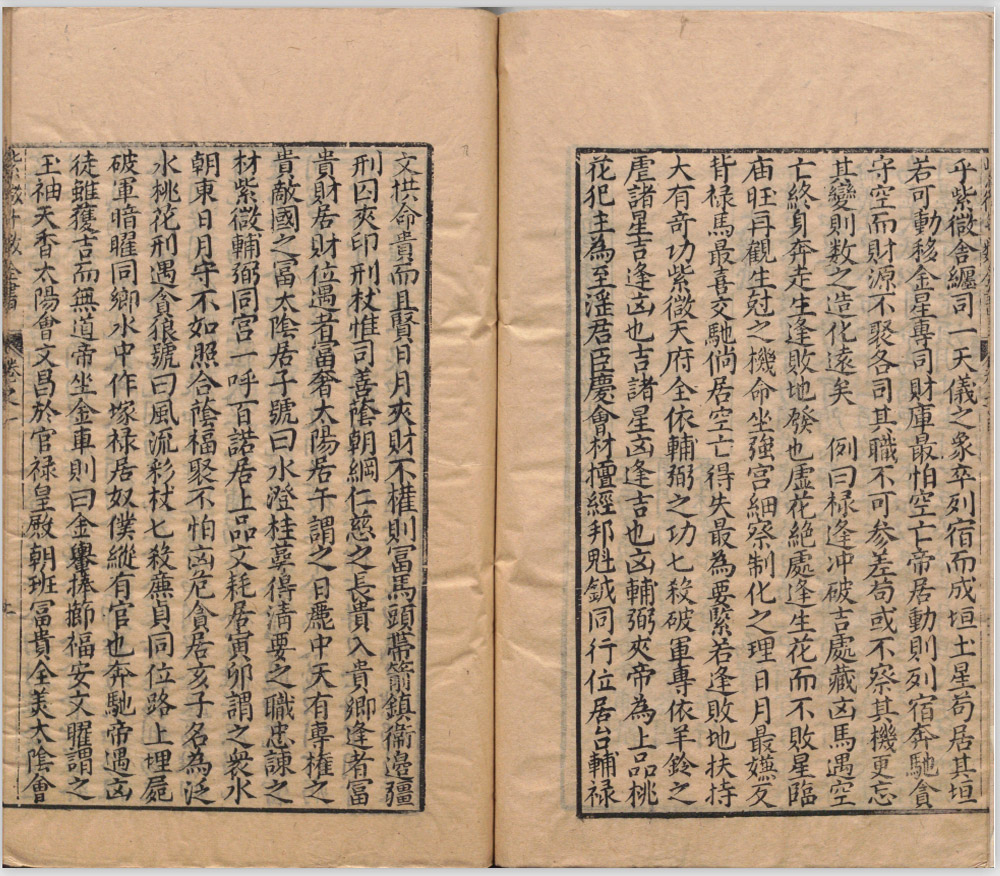 乎紫微舍纒司一天儀之象卒列宿而成垣土星苟居其垣
若可動移金星專司財庫最怕空亡帝居動則列宿奔馳貪
守空而財源不聚各司其職不可参差苟或不察其機更忘
其變則数之造化遠矣　例曰禄逢冲破吉處藏凶馬遇空
亡終身奔走生逢敗地發也虚花絶處逢生花而不敗星臨
庙旺再觀生尅之機命坐強宫細察制化之理日月最嫌反
背禄馬最喜交馳倘居空亡得失最為要緊若逢敗地扶持
大有奇功紫微天府全依輔弼之功七殺破軍專依羊鈴之
虐諸星吉逢凶也吉諸星凶逢吉也凶輔弼夾帝為上品桃
花犯主為至滛君臣慶會材擅經邦魁鉞同行位居台輔禄
文拱命貴而且賢日月夾財不權則冨馬頭帶箭鎮衞邉疆
刑囚夾印刑杖惟司善蔭朝綱仁慈之長貴入貴鄉逢者冨
貴財居財位遇者富奢太陽居午謂之日麗中天有專權之
貴敵國之冨太陰居子號曰水澄桂萼得淸要之職忠諫之
材紫微輔弼同宫一呼百諾居上品文耗居寅卯謂之衆水
朝東日月守不如照合蔭福聚不怕凶危貪居亥子名為泛
水桃花刑遇貪狼號曰風流彩杖七殺廉貞同位路上埋屍
破軍暗曜同鄉水中作塚禄居奴僕縱有官也奔馳帝遇凶
徒雖獲吉而無道帝坐金車則曰金轝捧櫛福安文曜謂之
玉袖天香太陽會文昌於官禄皇殿朝班冨貴全美太陰會
紫微斗數全書　卷之一